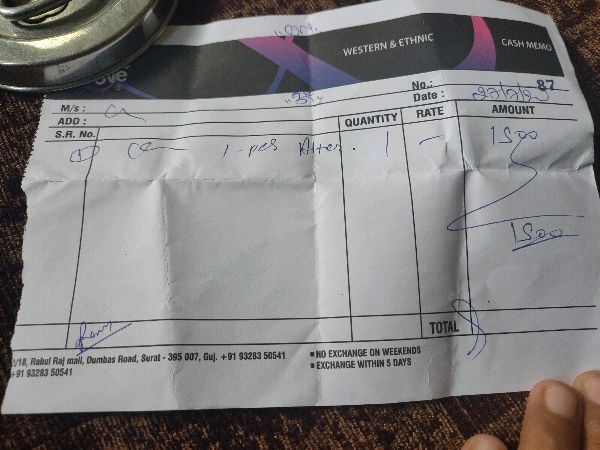 WESTERN & ETHNIC
CASH MEMO
ove ®
No.: 87
M/s :
Date :
ADD :
S.R. No. QUANTITY RATE AMOUNT
1 - pcs Alter. 1 - 1500
1500
TOTAL
1/18, Rahul Raj mall, Dumbas Road, Surat - 395 007, Guj. +91 93283 50541
+91 93283 50541
▪ NO EXCHANGE ON WEEKENDS
▪ EXCHANGE WITHIN 5 DAYS